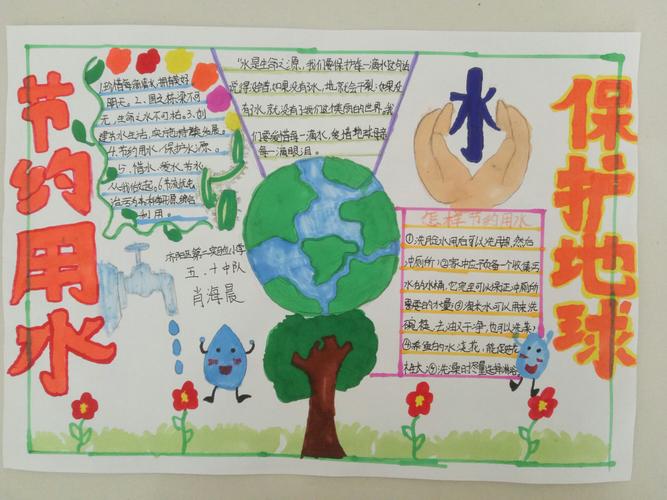 节约用水
1.珍惜每滴水,拥有美好
明天。2.国之栋梁不可
无,生命之水不可枯。3.创
建节水生活,实现持续发展。
4.节约用水,保护水源。
5.惜水、爱水、节水,
从我做起。6.节流优先
治污为本
利用。
"水是生命之源,我们要保护每一滴水
如果没有水,地球就会干裂;如果没
有水,就没有了我们这个美丽的世界。我
们要爱惜每一滴水,爱惜地球母亲
每一滴眼泪。
水
保护地球
第二实验小学
五.十中队
肖海晨
怎样节约用水
①洗脸水用后可以洗脚,然后
冲厕所;②家中应予备一个收集污
水的水桶,它完全可以保证冲厕所
需要的水量;③淘米水可以用来洗
碗筷,去油又干净,也可以洗菜;
④养鱼的水浇花,能促进花
⑤洗澡时尽量选择淋浴